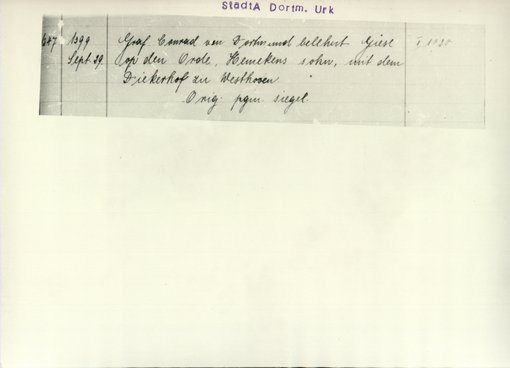 StadtA Dortm. Urk
647 1399 Graf Conrad von Dortmund belehnt Giese
Sept. 29. op den Orde, Hemekens sohn, mit dem
Diekerhof zu Westhoven
Orig. pgm. siegel.